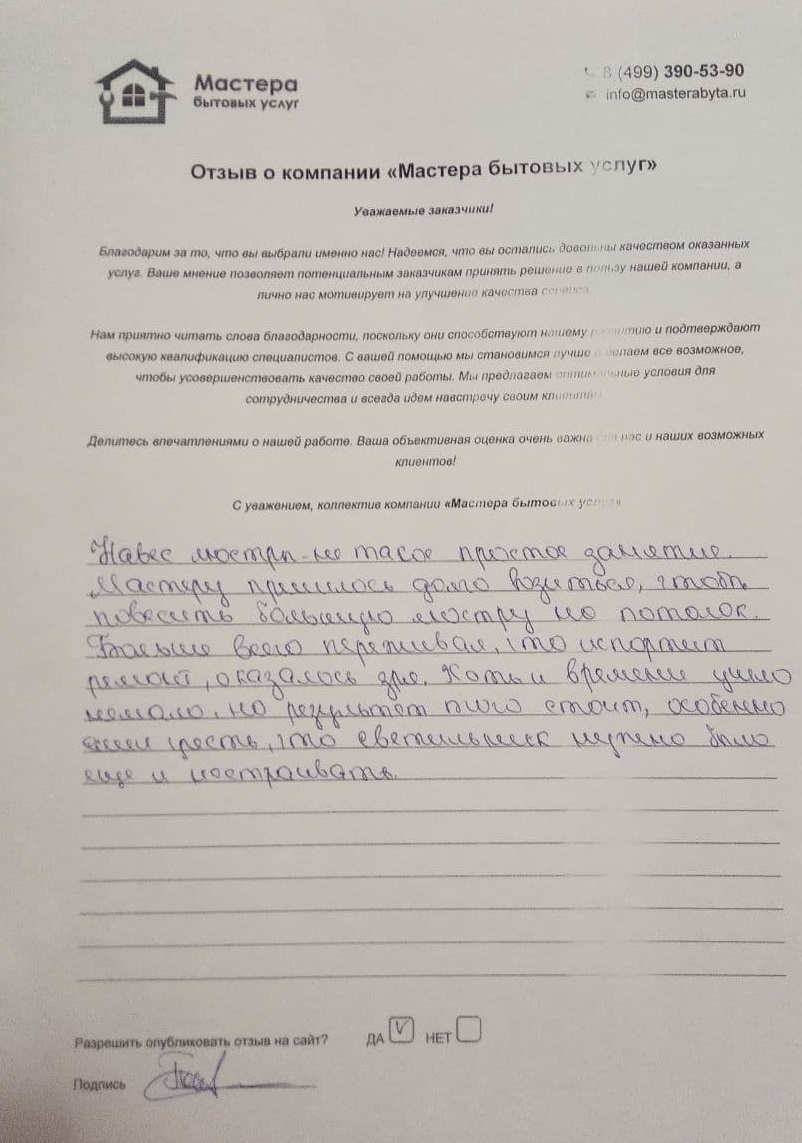 Мастера
бытовых услуг
8 (499) 390-53-90
info@masterabyta.ru
Отзыв о компании «Мастера бытовых услуг»
Уважаемые заказчики!
Благодарим за то, что вы выбрали именно нас! Надеемся, что вы остались довольны качеством оказанных
услуг. Ваше мнение позволяет потенциальным заказчикам принять решение в пользу нашей компании, а
лично нас мотивирует на улучшение качества сервиса.
Нам приятно читать слова благодарности, поскольку они способствуют нашему развитию и подтверждают
высокую квалификацию специалистов. С вашей помощью мы становимся лучше и делаем все возможное,
чтобы усовершенствовать качество своей работы. Мы предлагаем оптимальные условия для
сотрудничества и всегда идем навстречу своим клиентам.
Делитесь впечатлениями о нашей работе. Ваша объективная оценка очень важна для нас и наших возможных
клиентов!
С уважением, коллектив компании «Мастера бытовых услуг»
Навес люстры - не такое простое занятие.
Мастеру пришлось долго возиться, чтобы
повесить большую люстру на потолок.
Больше всего переживал, что испортит
ремонт, оказалось зря. Хоть и времени ушло
немало, но результат того стоит, особенно
если учесть, что светильник нужно было
еще и настраивать.
Разрешить опубликовать отзыв на сайт? ДА НЕТ
Подпись